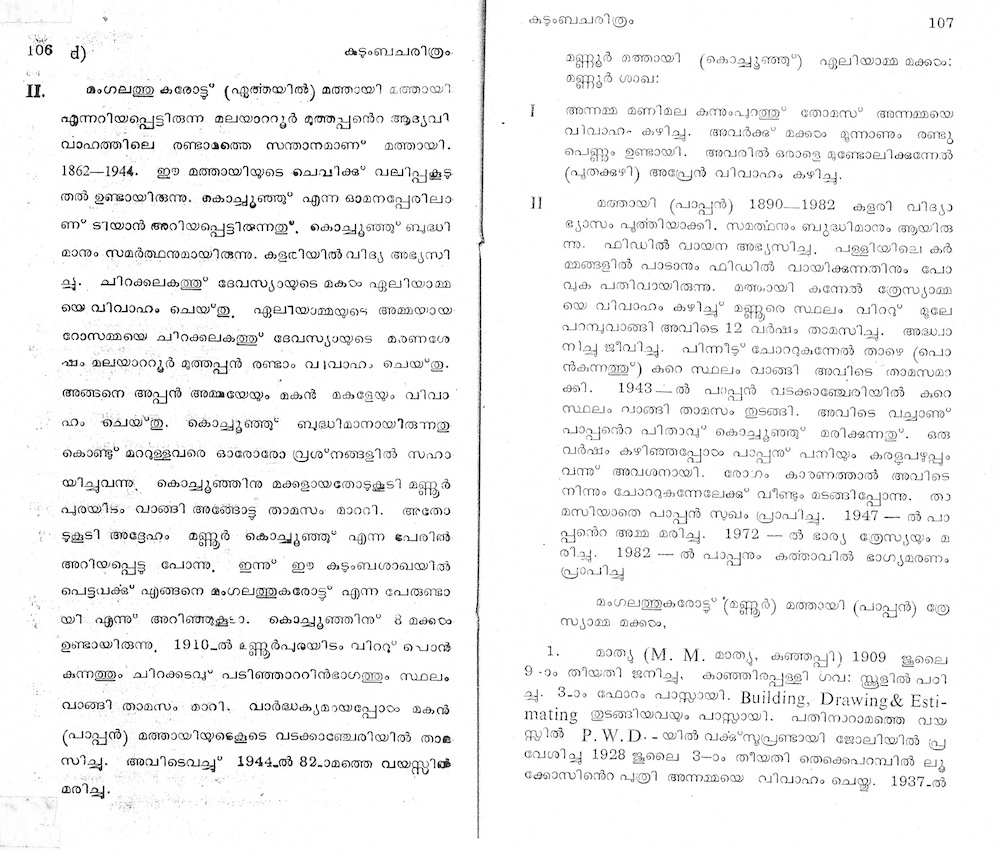 106 d) കുടുംബചരിത്രം
II. മംഗലത്തു കരോട്ടു് (ഏത്തയിൽ) മത്തായി മത്തായി
എന്നറിയപ്പെട്ടിരുന്ന മലയാററൂർ മുത്തപ്പന്റെ ആദ്യവി
വാഹത്തിലെ രണ്ടാമത്തെ സന്താനമാണ് മത്തായി.
1862—1944. ഈ മത്തായിയുടെ ചെവിക്കു് വലിപ്പകൂടു
തൽ ഉണ്ടായിരുന്നു. കൊച്ചൂഞ്ഞു് എന്ന ഓമനപ്പേരിലാ
ണ് ടിയാൻ അറിയപ്പെട്ടിരുന്നതു്. കൊച്ചൂഞ്ഞു് ബുദ്ധി
മാനും സമർത്ഥനുമായിരുന്നു. കളരിയിൽ വിദ്യ അഭ്യസി
ച്ചു. ചിറക്കലകത്തു് ദേവസ്യായുടെ മകൾ ഏലിയാമ്മ
യെ വിവാഹം ചെയ്തു. ഏലിയാമ്മയുടെ അമ്മയായ
റോസമ്മയെ ചിറക്കലകത്തു് ദേവസ്യായുടെ മരണശേ
ഷം മലയാററൂർ മുത്തപ്പൻ രണ്ടാം വിവാഹം ചെയ്തു.
അങ്ങനെ അപ്പൻ അമ്മയേയും മകൻ മകളേയും വിവാ
ഹം ചെയ്തു. കൊച്ചൂഞ്ഞു് ബുദ്ധിമാനായിരുന്നതു
കൊണ്ടു് മററുള്ളവരെ ഓരോരോ പ്രശ്നങ്ങളിൽ സഹാ
യിച്ചുവന്നു. കൊച്ചൂഞ്ഞിനു മക്കളായതോടുകൂടി മണ്ണൂർ
പുരയിടം വാങ്ങി അങ്ങോട്ടു താമസം മാററി. അതോ
ടുകൂടി അദ്ദേഹം മണ്ണൂർ കൊച്ചൂഞ്ഞു് എന്ന പേരിൽ
അറിയപ്പെട്ടു പോന്നു. ഇന്നു് ഈ കുടുംബശാഖയിൽ
പെട്ടവർക്കു് എങ്ങനെ മംഗലത്തുകരോട്ടു് എന്ന പേരുണ്ടാ
യി എന്നു് അറിഞ്ഞുകൂടാ. കൊച്ചൂഞ്ഞിനു് 8 മക്കൾ
ഉണ്ടായിരുന്നു. 1910-ൽ മണ്ണൂർപുരയിടം വിററു് പൊൻ
കുന്നത്തും ചിറക്കടവു് പടിഞ്ഞാററിൻഭാഗത്തും സ്ഥലം
വാങ്ങി താമസം മാറി. വാർദ്ധക്യമായപ്പോൾ മകൻ
(പാപ്പൻ) മത്തായിയുടെകൂടെ വടക്കാഞ്ചേരിയിൽ താമ
സിച്ചു. അവിടെവച്ചു് 1944-ൽ 82-ാമത്തെ വയസ്സിൽ
മരിച്ചു.
കുടുംബചരിത്രം 107
മണ്ണൂർ മത്തായി (കൊച്ചൂഞ്ഞു്) ഏലിയാമ്മ മക്കൾ:
മണ്ണൂർ ശാഖ:
I അന്നമ്മ മണിമല കുന്നുംപുറത്തു് തോമസ് അന്നമ്മയെ
വിവാഹം കഴിച്ചു. അവർക്കു് മക്കൾ മൂന്നാണും രണ്ടു
പെണ്ണും ഉണ്ടായി. അവരിൽ ഒരാളെ മുണ്ടോലിക്കുന്നേൽ
(പൂതക്കുഴി) അപ്രേൻ വിവാഹം കഴിച്ചു.
II മത്തായി (പാപ്പൻ) 1890—1982 കളരി വിദ്യാ
ഭ്യാസം പൂർത്തിയാക്കി. സമർത്ഥനും ബുദ്ധിമാനും ആയിരു
ന്നു. ഫിഡിൽ വായന അഭ്യസിച്ചു. പള്ളിയിലെ കർ
മ്മങ്ങളിൽ പാടാനും ഫിഡിൽ വായിക്കുന്നതിനും പോ
വുക പതിവായിരുന്നു. മത്തായി കുന്നേൽ ത്രേസ്യാമ്മ
യെ വിവാഹം കഴിച്ചു് മണ്ണൂരെ സ്ഥലം വിററു് മൂലേ
പറമ്പുവാങ്ങി അവിടെ 12 വർഷം താമസിച്ചു. അദ്ധ്വാ
നിച്ചു ജീവിച്ചു. പിന്നീടു് ചോററുകുന്നേൽ താഴെ (പൊ
ൻകുന്നത്തു്) കുറെ സ്ഥലം വാങ്ങി അവിടെ താമസമാ
ക്കി. 1943—ൽ പാപ്പൻ വടക്കാഞ്ചേരിയിൽ കുറെ
സ്ഥലം വാങ്ങി താമസം തുടങ്ങി. അവിടെ വച്ചാണു്
പാപ്പന്റെ പിതാവു് കൊച്ചൂഞ്ഞു് മരിക്കുന്നതു്. ഒരു
വർഷം കഴിഞ്ഞപ്പോൾ പാപ്പനു് പനിയും കരളുപഴുപ്പും
വന്നു് അവശനായി. രോഗം കാരണത്താൽ അവിടെ
നിന്നും ചോററുകുന്നേലേക്കു് വീണ്ടും മടങ്ങിപ്പോന്നു. താ
മസിയാതെ പാപ്പൻ സുഖം പ്രാപിച്ചു. 1947 — ൽ പാ
പ്പന്റെ അമ്മ മരിച്ചു. 1972 — ൽ ഭാര്യ ത്രേസ്യയും മ
രിച്ചു. 1982 — ൽ പാപ്പനും കർത്താവിൽ ഭാഗ്യമരണം
പ്രാപിച്ചു
മംഗലത്തുകരോട്ടു് (മണ്ണൂർ) മത്തായി (പാപ്പൻ) ത്രേ
സ്യാമ്മ മക്കൾ,
1. മാത്യു (M. M. മാത്യു, കുഞ്ഞപ്പി) 1909 ജൂലൈ
9-ാം തീയതി ജനിച്ചു, കാഞ്ഞിരപ്പള്ളി ഗവ: സ്ക്കൂളിൽ പഠി
ച്ചു. 3-ാം ഫോറം പാസ്സായി. Building, Drawing & Esti-
mating തുടങ്ങിയവയും പാസ്സായി. പതിനാറാമത്തെ വയ
സ്സിൽ P.W.D.-യിൽ വർക്കു്സൂപ്രണ്ടായി ജോലിയിൽ പ്ര
വേശിച്ചു 1928 ജൂലൈ 3—ാം തീയതി തെക്കെപറമ്പിൽ ലൂ
ക്കോസിന്റെ പുത്രി അന്നമ്മയെ വിവാഹം ചെയ്തു. 1937-ൽ